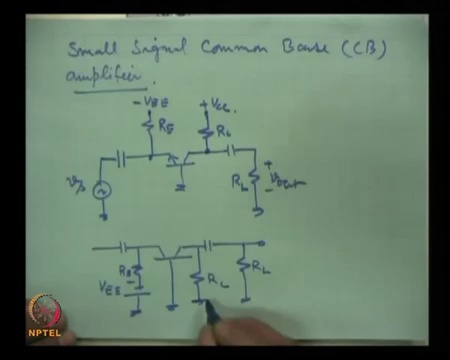 Small Signal Common Base (CB)
amplifier.
-VEE
+VCC
RE
RL
vs
RL
+
Vout
-
RE
-
VEE
RL
RL
NPTEL